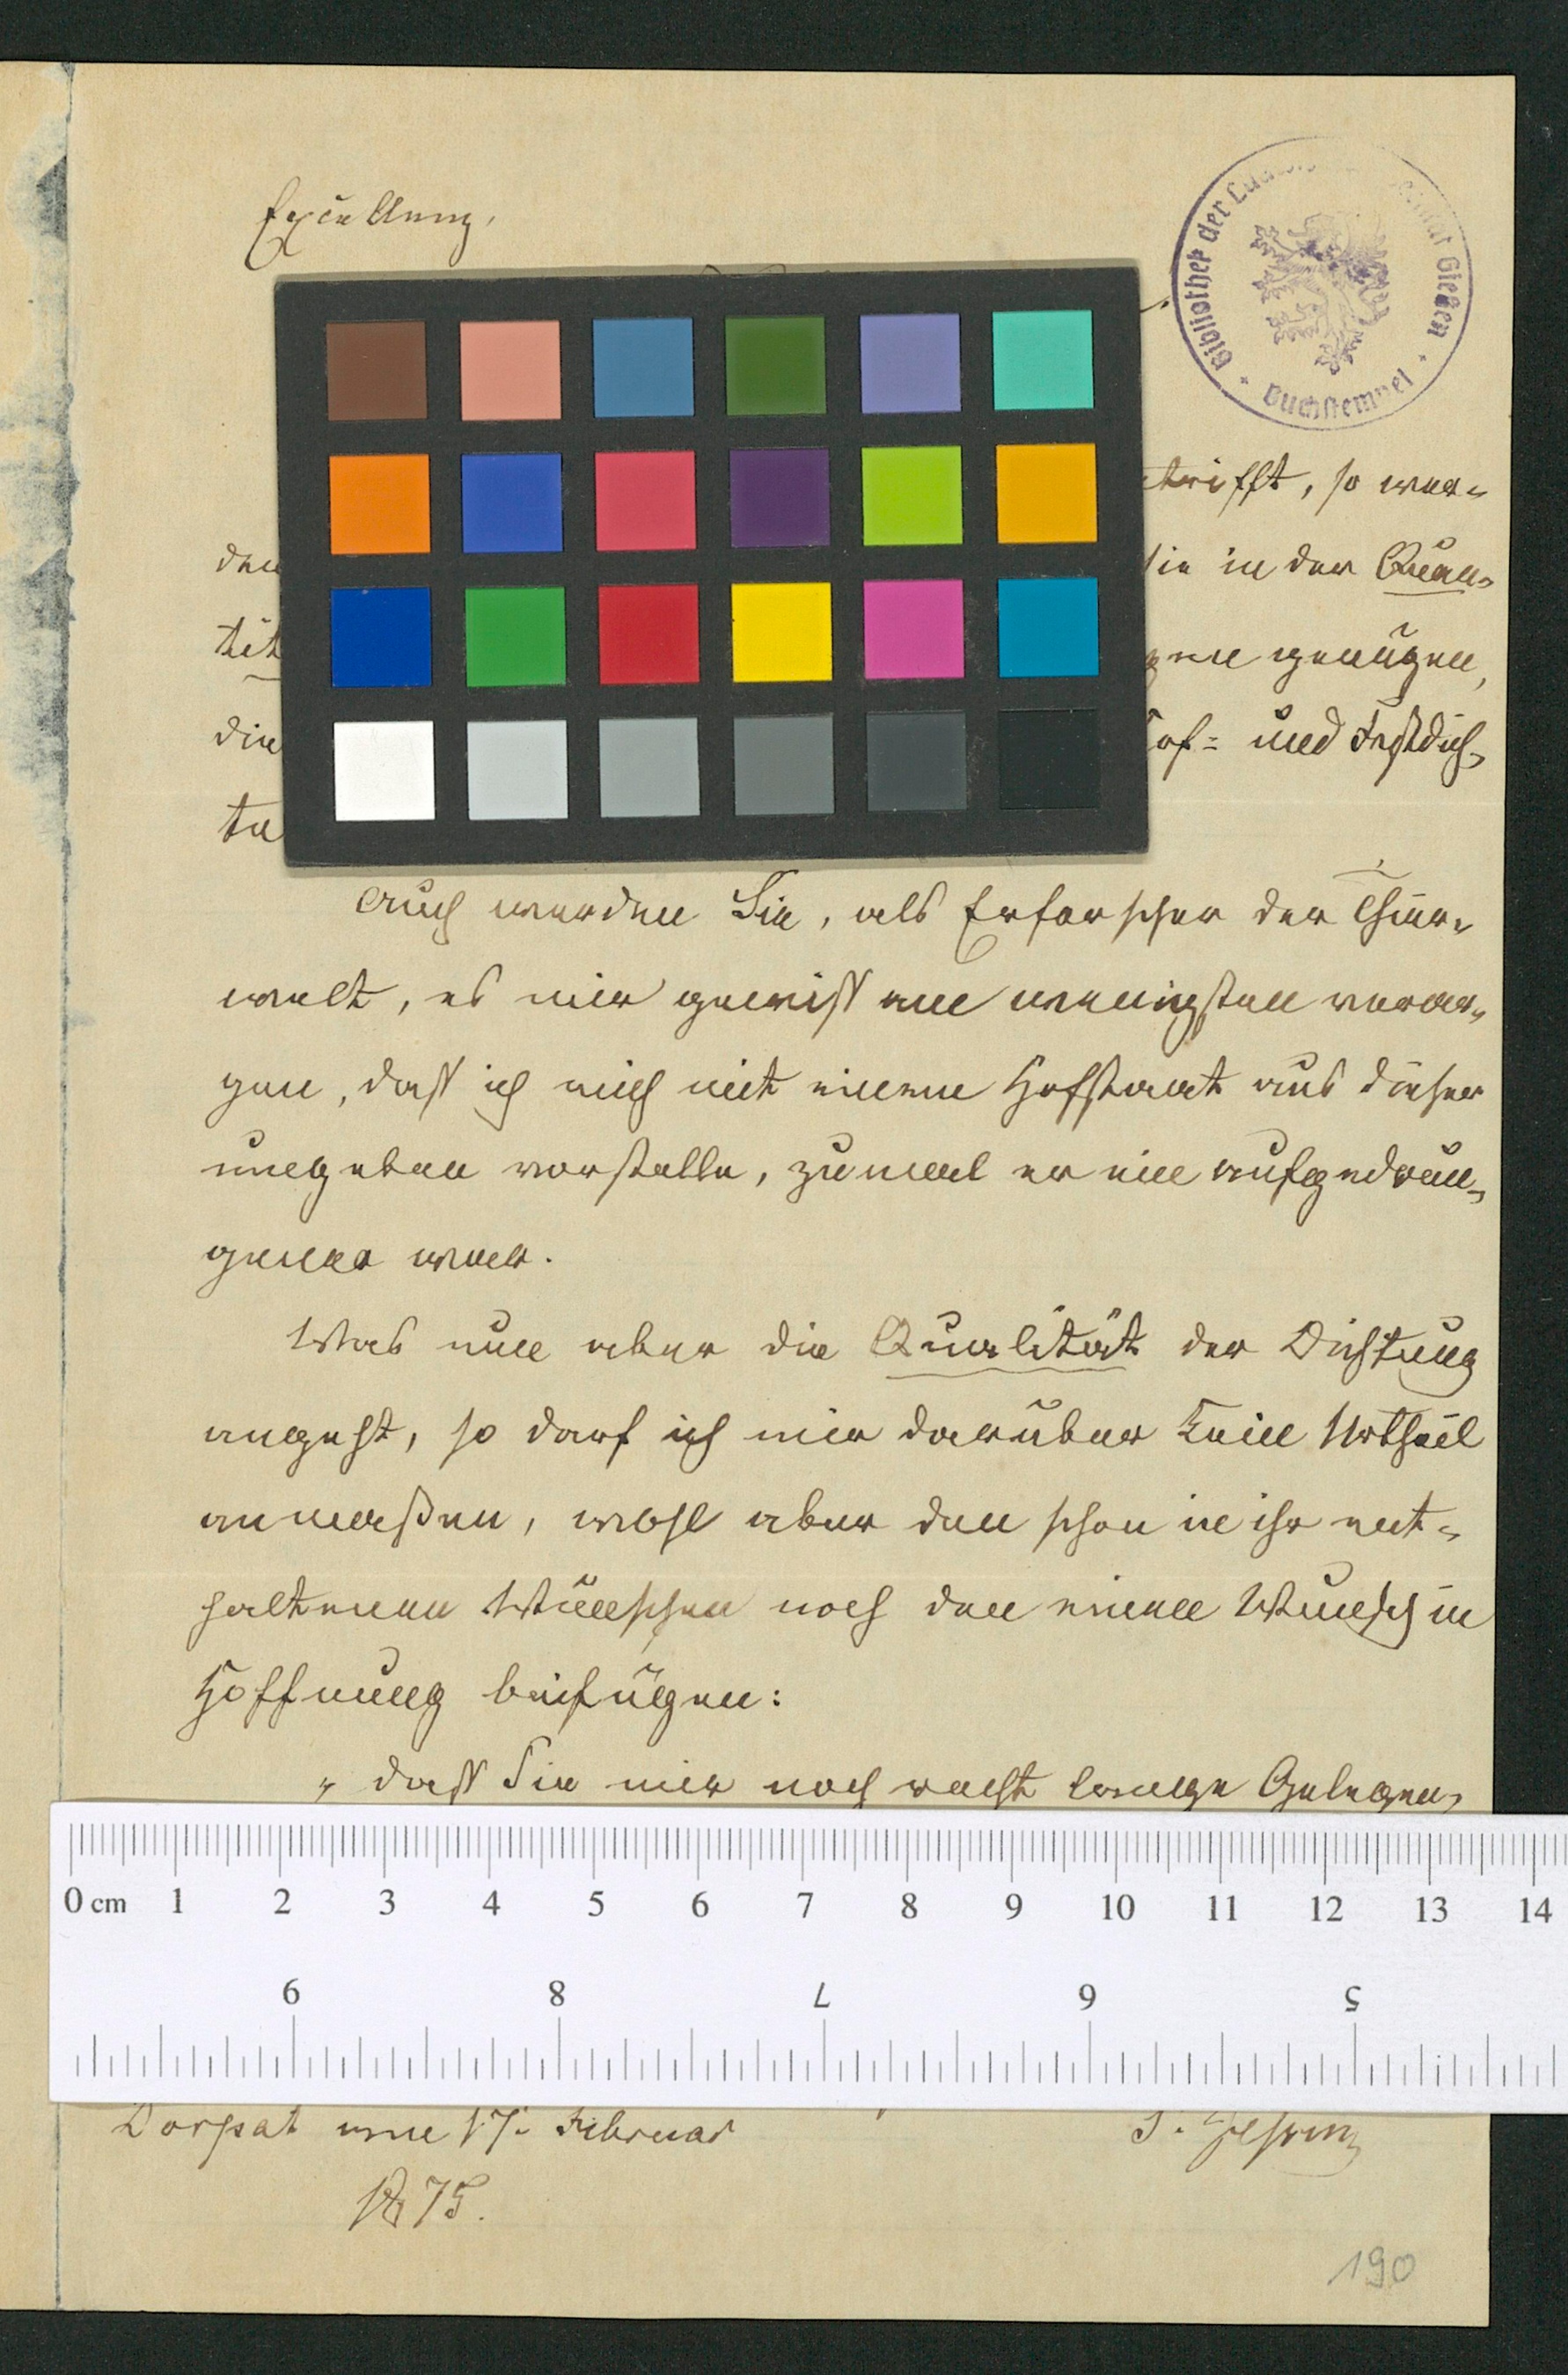 Excellenz,
Bibliothek der Ludwigs-Universität Gießen
Buchstempel
trifft, so wer-
den
sie in der Quan-
tität
genügen,
die
Hof= und Festdich-
te
Auch werden Sie, als Erforscher der Thier-
welt, es mir gewiß am wenigsten verar-
gen, daß ich mich mit einem Hofstaat aus dieser
umgeben vorstelle, zumal er ein aufgedrun-
gener war.
Was nun aber die Qualität der Dichtung
angeht, so darf ich mir darüber kein Urtheil
anmaßen, wohl aber den schon in ihr ent-
haltenen Wünschen noch den einen Wunsch in
Hoffnung beifügen:
„daß Sie mir noch recht lange Gelegen-
0 cm 1 2 3 4 5 6 7 8 9 10 11 12 13 14
9 8 7 6 5
Dorpat am 17. Februar
1875.
190